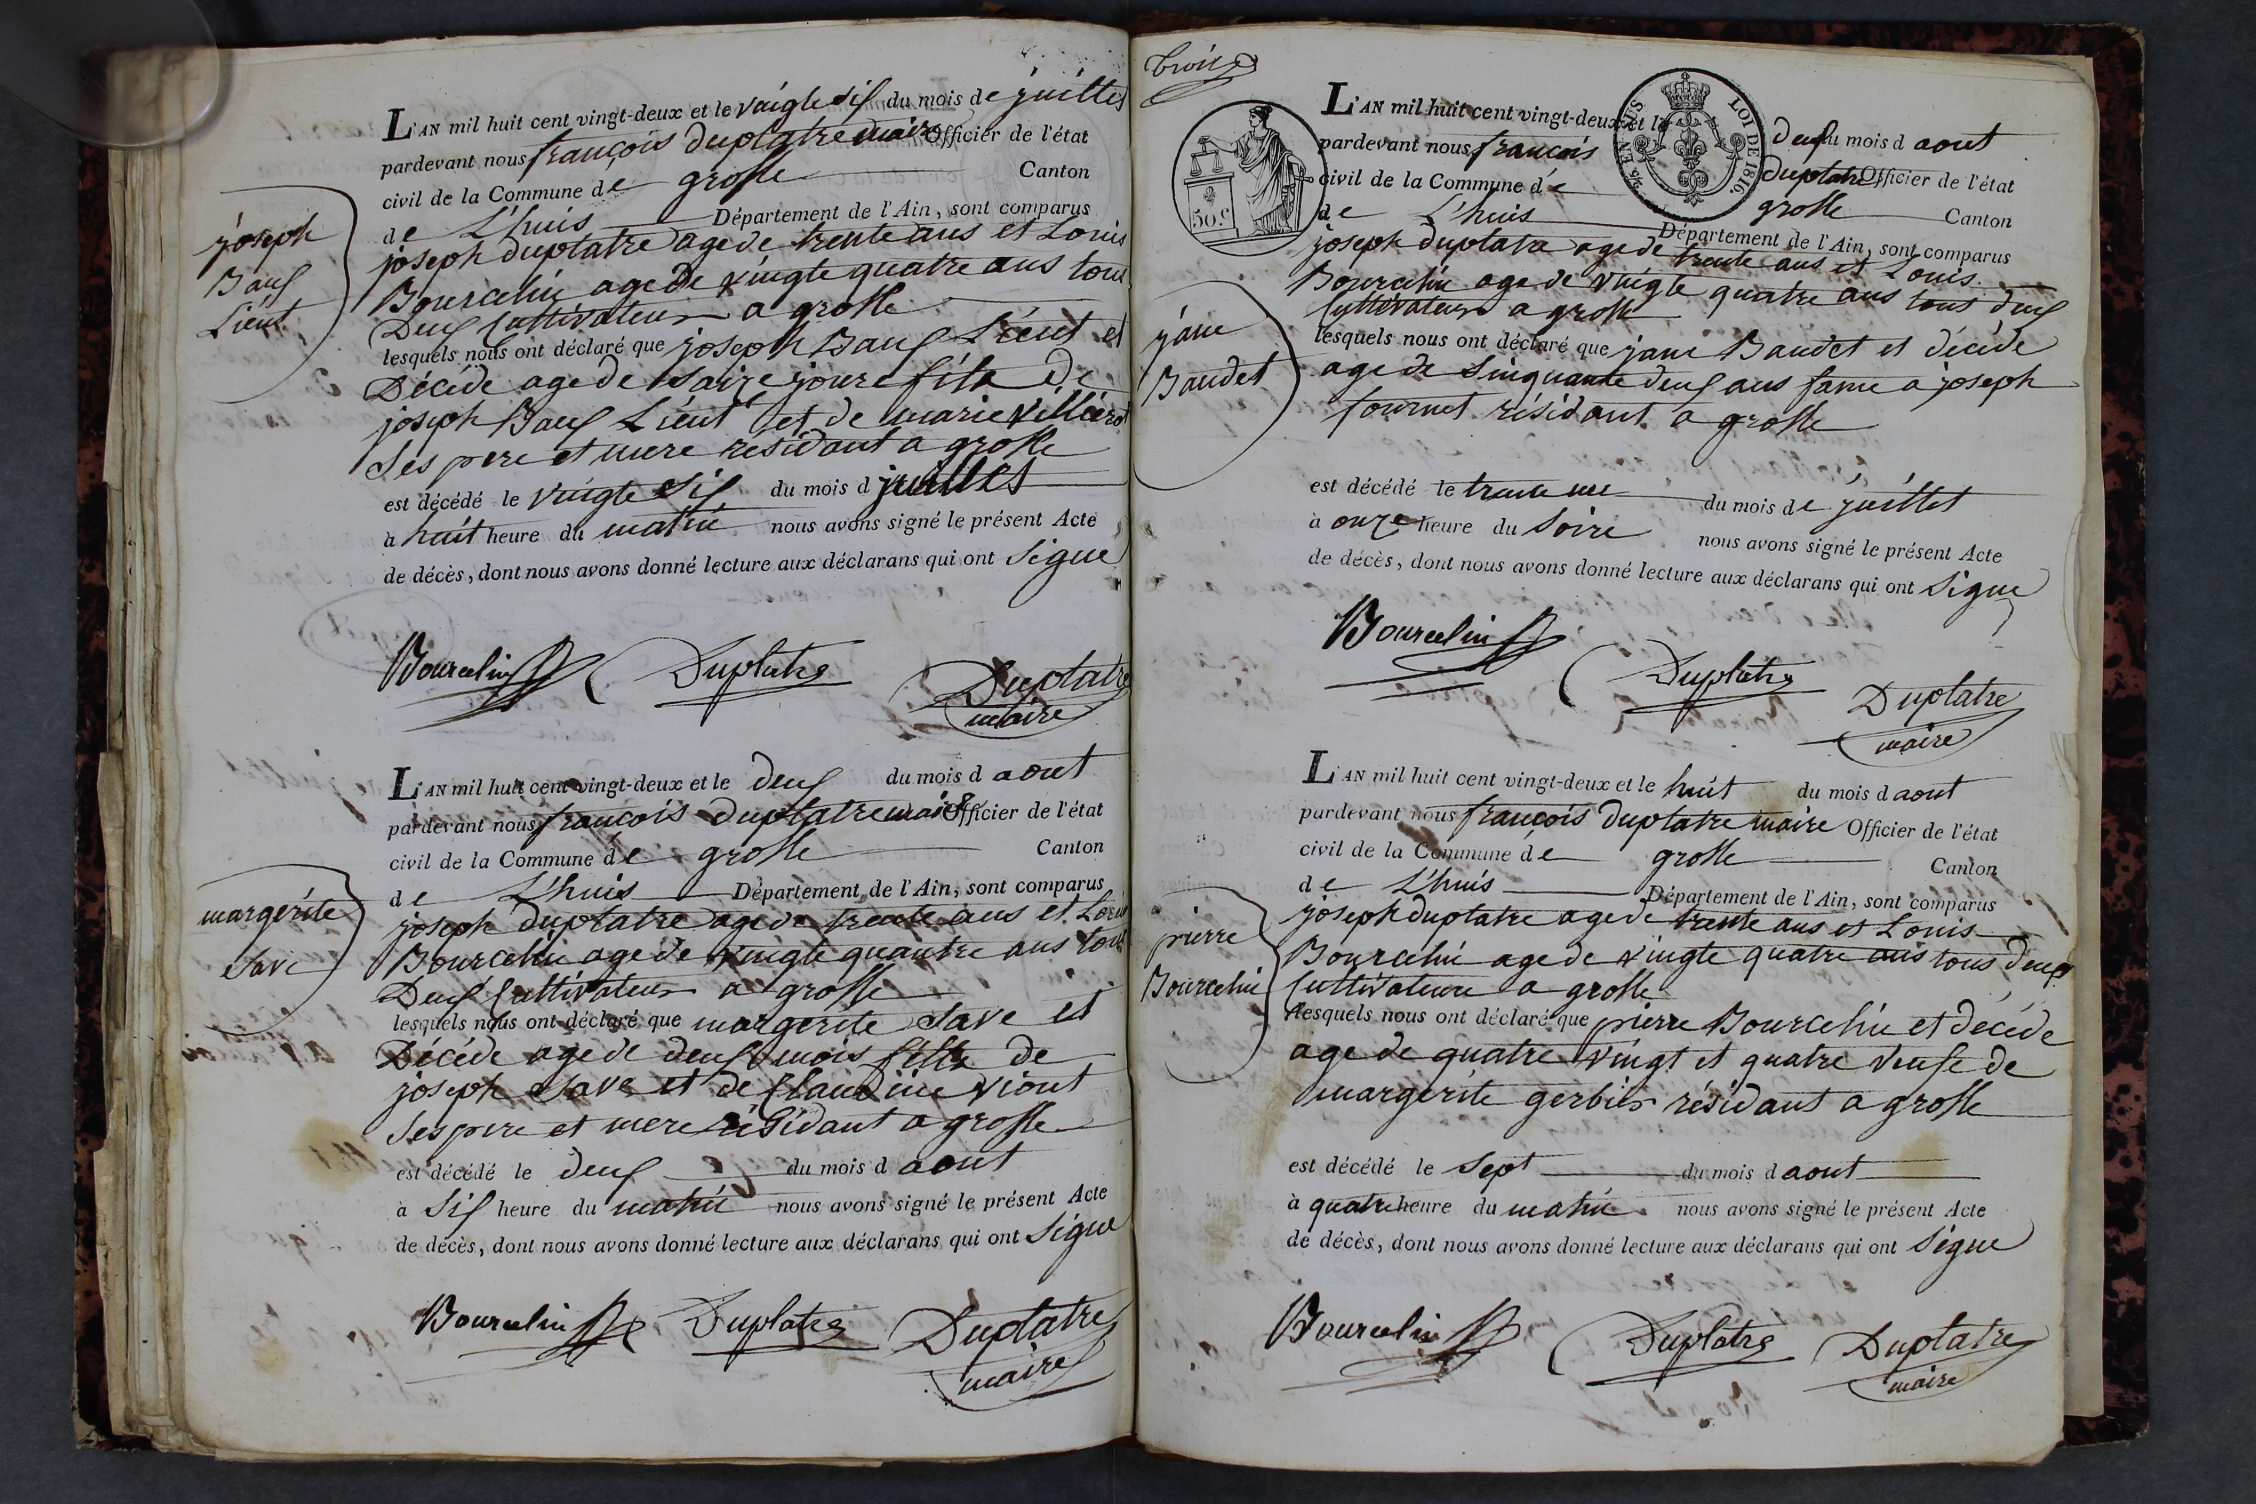 joseph
Baux
Lient
L'AN mil huit cent vingt-deux et le vaigte six du mois de juillet
pardevant nous françois duplatre maire Officier de l'état
civil de la Commune de grolle Canton
de L'huis Département de l'Ain, sont comparus
joseph duplatre age de trente ans et Louis
Bourcelin age de vingte quatre ans tous
Deux Cultivateur a grolle
lesquels nous ont déclaré que joseph Baux Lient et
Décéde age de saize joure fils de
joseph Baux Lient et de marie
ses pere et mere residant a grolle
est décédé le vingte six du mois d juillet
à huit heure du matin nous avons signé le présent Acte
de décès, dont nous avons donné lecture aux déclarans qui ont signe
Bourcelin Duplatre Duplatre
maire
margerite
Save
L'AN mil huit cent vingt-deux et le deux du mois d aout
pardevant nous françois duplatre maire Officier de l'état
civil de la Commune de grolle Canton
de L'huis Département de l'Ain, sont comparus
joseph duplatre age de trente ans et Louis
Bourcelin age de vingte quantre ans tous
Deux Cultivateur a grolle
lesquels nous ont déclaré que margerite Save et
Décéde age de deux mois fille de
joseph Save et de Claudine Viont
ses pere et mere résidant a grolle
est décédé le deux du mois d aout
à six heure du matin nous avons signé le présent Acte
de décès, dont nous avons donné lecture aux déclarans qui ont signe
Bourcelin Duplatre Duplatre
maire
trois
50.c
LOI DE 1816.
EN SUS
jane
Baudet
L'AN mil huit cent vingt-deux et le deux du mois d aout
pardevant nous francois duplatre Officier de l'état
civil de la Commune de grolle Canton
de L'huis Département de l'Ain, sont comparus
joseph duplatra age de trente ans et Louis
Bourcelin age de vingte quatre ans tous deux
Cultivateur a grolle
lesquels nous ont déclaré que jane Baudet et décéde
age de sinquante deux ans fame a joseph
fournet résidant a grolle
est décédé le trente une du mois de juillet
à onze heure du soire nous avons signé le présent Acte
de décès, dont nous avons donné lecture aux déclarans qui ont signe
Bourcelin Duplatre Duplatre
maire
pierre
Bourcelin
L'AN mil huit cent vingt-deux et le huit du mois d aout
pardevant nous françois duplatre maire Officier de l'état
civil de la Commune de grolle Canton
de L'huis Département de l'Ain, sont comparus
joseph duplatre age de trente ans et Louis
Bourcelin age de vingte quatre ans tous deux
Cultivateure a grolle
lesquels nous ont déclaré que pierre Bourcelin et decéde
age de quatre vingt et quatre veufe de
margerite gerbier résidant a grolle
est décédé le sept du mois d aout
à quatre heure du matin nous avons signé le présent Acte
de décès, dont nous avons donné lecture aux déclarans qui ont signe
Bourcelin Duplatre Duplatre
maire